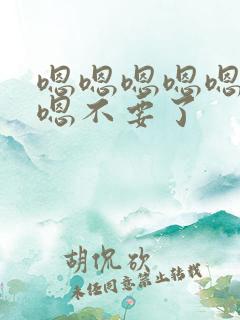 嗯嗯嗯嗯嗯
嗯不要了
胡侃砍
未经同意禁止转载